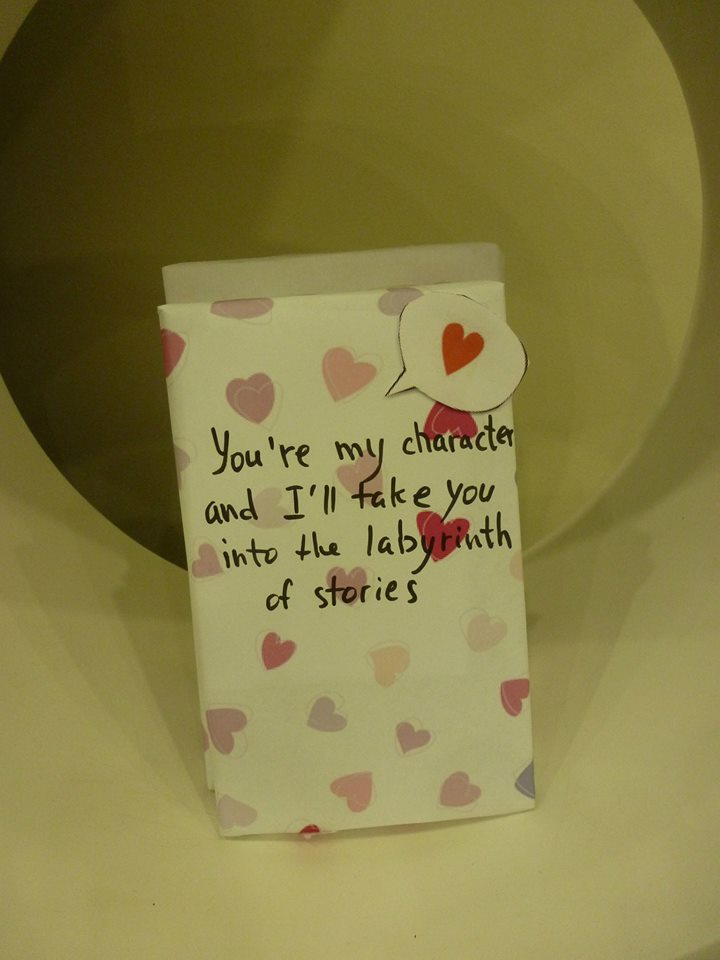 You're my character
and I'll take you
into the labyrinth
of stories